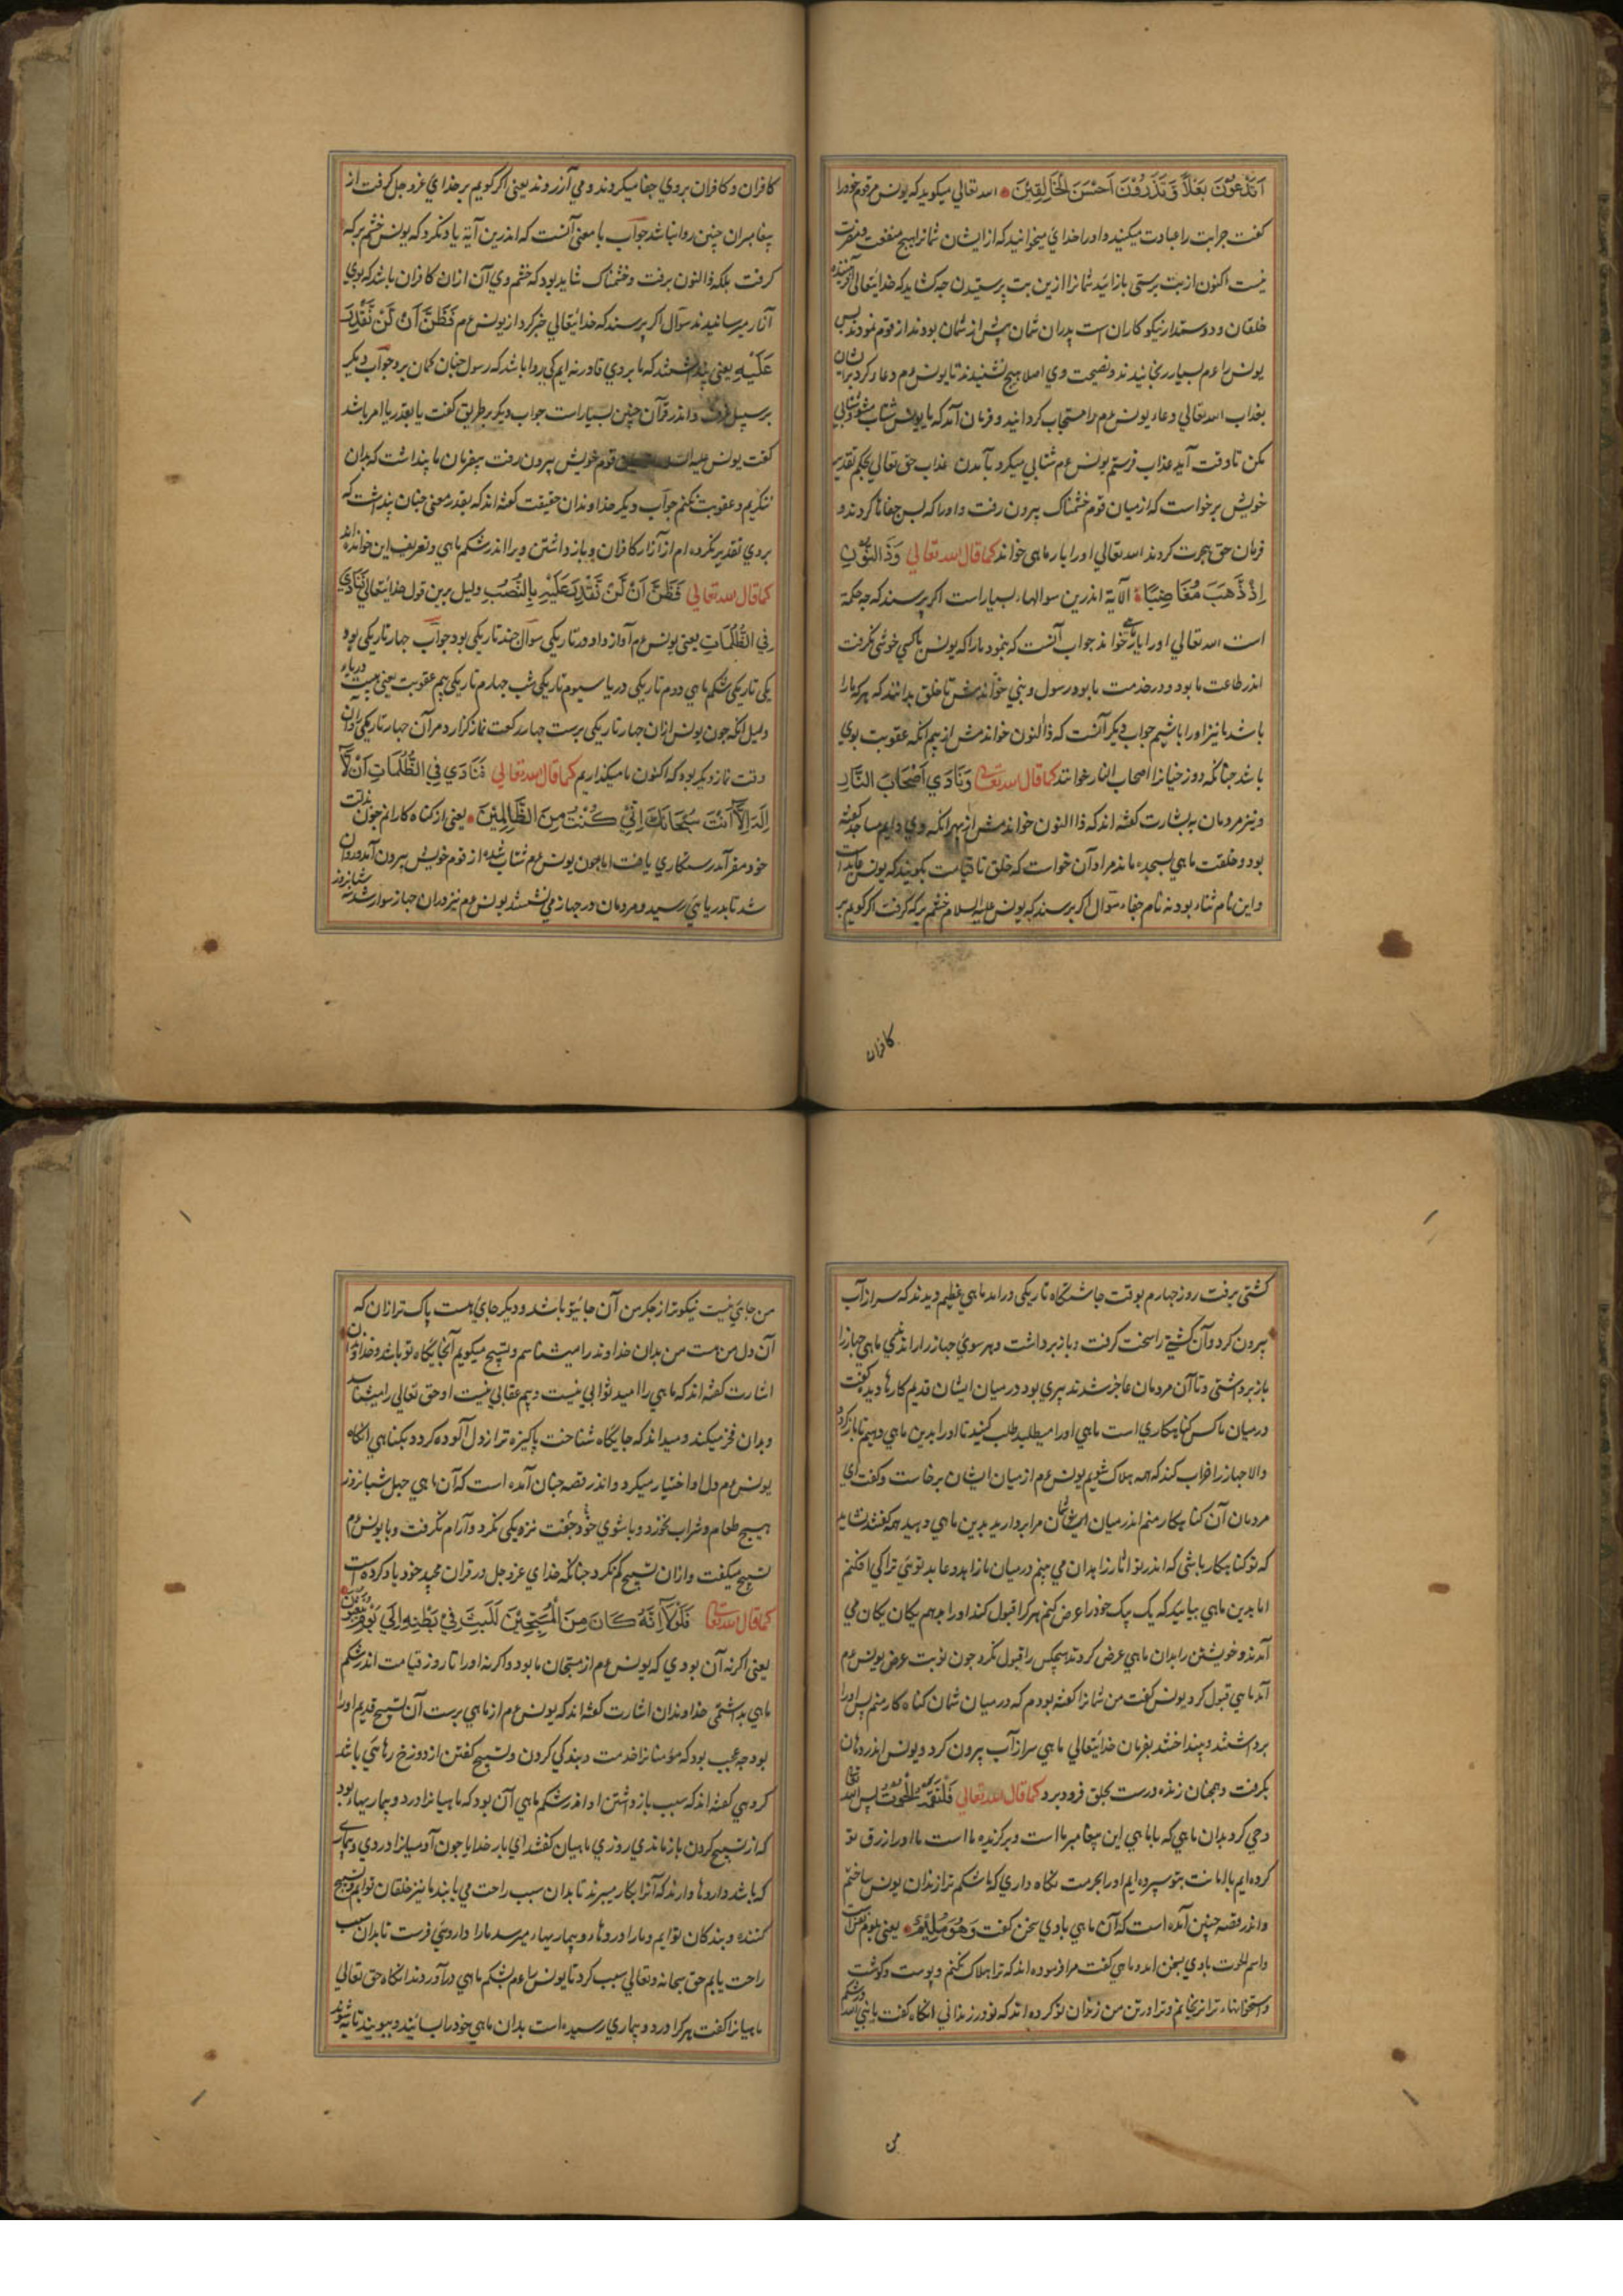 اَتَدْعُوْنَ بَعْلًا وَّتَذَرُوْنَ اَحْسَنَ الْخَالِقِيْنَ الله تعالي ميكويد كه يونس مر قوم خود را
كفت جرا بت را عبادت ميكنيد و او را خداي ميخوانيد كه از ايشان شمانرا هيچ منفعت و مضرت
نيست اكنون از بت پرستي باز آئيد شمانرا ازين بت پرستيدن جه كشايد كه خدايتعالي آفريننده
خلقان و دوستدار نيكوكاران است پدران شمان پيش از شمان بودند از قوم نمودند پس
يونس را عم بسيار رنجانيدند و نصيحت وي اصلا هيچ نشنيدند تا يونس عم دعا كرد بر ايشان
بعذاب الله تعالي دعاء يونس عم را مستجاب كردانيد و فرمان آمد كه يا يونس شتاب
مكن تا وقت آيد عذاب فرستم يونس عم شتابي ميكرد بآمدن عذاب حق تعالي بحكم تقدير
خويش برخواست كه از ميان قوم خشمناك بيرون رفت و او را كه بس جفاها كردند و
فرمان حق هجرت كردند الله تعالي او را يار ماهي خواند كما قال الله تعالي وَذَا النُّوْنِ
اِذْ ذَّهَبَ مُغَاضِبًا الآية اندرين سوالهاء بسيار است اكر پرسند كه جه حكمة
است الله تعالي او را يار ماهي خواند جواب آنست كه بنمود ما را كه يونس با كسي خوشي نكرفت
اندر طاعت ما بود و در خدمت ما بود رسول و نبي خواندمش تا خلق بدانند كه هر كه ما را
باشد ما نيز او را باشيم جواب ديكر آنست كه ذالنون خواندمش از بهر آنكه عقوبت بوي
باشد جنانكه دوزخيانرا اصحاب النار خوانند كما قال الله تعالي وَنَادَي اَصْحَابُ النَّارِ
و نيز مردمان به بشارت كفته اند كه ذاالنون خواندمش از بهر انكه وي دايم ساجد كفته
بود و خلقت ماهي بسجده ماند مراد آن خواست كه خلق تا قيامت بكويند كه يونس عابد است
و اين نام ثناء بود نه نام جفاء سوال اكر پرسند كه يونس عليه السلام خشم بر كه كرفت اكر كويم بر
كافران
كافران و كافران بروي جفا ميكردند و مي آزردند يعني اكر كويم بر خداي عزوجل كرفت از
پيغامبران چنين روا نباشد جواب با معني آنست كه اندرين آية ياد نكرد كه يونس خشم بر كه
كرفت بلكه ذالنون برفت و خشمناك شايد بود كه خشم وي آن ازان كافران باشد كه بوي
آزار ميرسانيدند سوال اكر پرسند كه خدايتعالي خبر كرد از يونس عم فَظَنَّ اَنْ لَنْ نَّقْدِرَ
عَلَيْهِ يعني پنداشتند كه ما بر وي قادر نه ايم كي روا باشد كه رسول جنان كمان برد جواب ديكر
بر سبيل و اندر قرآن چنين بسيار است جواب ديكر بر طريق كفت يا بقدر ما امر باشد
كفت يونس عليه قوم خويش بيرون رفت بيفرمان ما پنداشت كه بدان
ننكريم و عقوبت نكنم جواب ديكر خداوندان حقيقت كفته اند كه بقدر معني جنان پنداشت كه
بروي تقدير نكرده ام از آزار كافران و باز داشتن ويرا اندر شكم ماهي و تعريف اين خوانده اند
كما قال الله تعالي فَظَنَّ اَنْ لَنْ نَّقْدِرَ عَلَيْهِ بِالنَّصْبِ دليل برين قول خدايتعالي فَنَادَي
فِي الظُّلُمَاتِ يعني يونس عم آواز داد در تاريكي سوال چند تاريكي بود جواب جهار تاريكي بود
يكي تاريكي شكم ماهي دوم تاريكي دريا سيوم تاريكي شب جهارم تاريكي بيم عقوبت يعني
دليل آنكه جون يونس ازان جهار تاريكي برست جهار ركعت نماز كزارد مر آن جهار تاريكي را و آن
وقت نماز ديكر بود كه اكنون ما ميكذاريم كما قال الله تعالي فَنَادَي فِي الظُّلُمَاتِ اَنْ لَّا
اِلَهَ اِلَّا اَنْتَ سُبْحَانَكَ اِنِّيْ كُنْتُ مِنَ الظَّالِمِيْنَ يعني از كناه كارانم جون بذلت
خود مقر آمد رستكاري يافت اما جون يونس عم شتاب شده از قوم خويش بيرون آمد و روان
شد تا بدريايي رسيد و مردمان در جهاز مي نشستند يونس عم نيز در ان جهاز سوار شد سه شبانروز
كشتي برفت روز جهارم بوقت جاشتكاه تاريكي درامد ماهي عظيم ديدند كه سر از آب
بيرون كرد و آن كشتي را سخت كرفت و باز برداشت و هر سوي جهاز را راندني ماهي جهاز را
باز برداشتي و تا آن مردمان عاجز شدند پيري بود در ميان ايشان قديم كارها ديده كفت
در ميان ما كس كناهكاري است ماهي او را ميطلبد طلب كنيد تا او را بدين ماهي دهيم تا باز كردد
والا جهاز را خراب كند كه همه هلاك شويم يونس عم از ميان ايشان برخاست و كفت اي
مردمان آن كناهكار منم اندر ميان شمان مرا برداريد بدين ماهي دهيد همه كفتند نشايد
كه تو كناهكار باشي كه اندر تو اثار زاهدان مي بينم در ميان ما زاهد و عابد توئي ترا كي افكنم
اما بدين ماهي بيائيد كه يك يك خود را عرض كنيم هر كرا قبول كند او را دهيم يكان يكان مي
آمدند و خويشتن را بدان ماهي عرض كردند هيچكس را قبول نكرد جون نوبت عرض يونس عم
آمد ماهي قبول كرد يونس كفت من شمانرا كفته بودم كه در ميان شمان كناه كار منم پس او را
برداشتند و بينداختند بفرمان خدايتعالي ماهي سر از آب بيرون كرد و يونس اندر دهان
بكرفت و همچنان زنده درست بحلق فرو برد كما قال الله تعالي فَالْتَقَمَهُ الْحُوْتُ پس الله تعالي
وحي كرد بدان ماهي كه يا ماهي اين پيغامبر ما است و بركزيده ما است ما او را رزق تو
نكرده ايم بامانت بتو سپرده ايم او را بحرمت نكاه داري كه ما شكم ترا زندان يونس ساختيم
و اندر قصه چنين آمده است كه آن ماهي با وي سخن كفت وَهُوَ مُلِيْمٌ يعني
باوي بسخن امد و ماهي كفت مرا فرموده اند كه ترا هلاك نكنم و پوست و كوشت
و استخوانهاء ترا نرنجانم و ترا در تن من زندان تو كرده اند كه تو در زنداني انكاه كفت يا نبي الله در شكم
من
من جاي نيست نيكوتر از جكر من آن جائي تو باشد و ديكر جاي هست پاك تر ازان كه
آن دل من است من بدان خداوند را ميشناسم و تسبيح ميكويم آنجايكاه تو باشد و خداوندان
اشارت كفته اند كه ماهي را اميد ثوابي نيست و بيم عقابي نيست او حق تعالي را ميشناسد
و بدان فخر ميكند و ميداند كه جايكاه شناخت پاكيزه تر از دل آلوده كردد بكناهي انكاه
يونس عم دل او اختيار ميكرد و اندر قصه جنان آمده است كه آن ماهي چهل شبانروز
هيچ طعام و شراب نخورد و با شوي خود جفت نزديكي نكرد و آرام نكرفت و با يونس عم
تسبيح ميكفت و ازان تسبيح كم نكرد جنانكه خداي عزوجل در قران مجيد خود ياد كرده است
كما قال الله تعالي فَلَوْلَا اَنَّهُ كَانَ مِنَ الْمُسَبِّحِيْنَ لَلَبِثَ فِيْ بَطْنِهِ اِلَي يَوْمِ يُبْعَثُوْنَ
يعني اكر نه آن بودي كه يونس عم از مسبحان ما بود و اكر نه او را تا روز قيامت اندر شكم
ماهي بداشتمي خداوندان اشارت كفته اند كه يونس عم از ماهي برست آن تسبيح قديم او را
بود جه عجب بود كه مؤمنانرا خدمت و بندكي كردن و تسبيح كفتن از دوزخ رهائي باشد
كروهي كفته اند كه سبب باز داشتن او اندر شكم ماهي آن بود كه ماهيانرا درد و بيماريهاء بود
كه از تسبيح كردن باز ماندي روزي ماهيان كفتند اي بار خدايا جون آدميانرا دردي و بيماريي
كه باشد داروها دارند كه آنرا بكار ميبرند تا بدان سبب راحت مي يابند ما نيز خلقان توايم و تسبيح
كننده و بندكان توايم و ما را دردها و بيماريها ميرسد ما را داروئي فرست تا بدان سبب
راحت يابم حق سبحانه و تعالي سبب كرد تا يونس را عم بشكم ماهي درآوردند انكاه حق تعالي
ماهيانرا كفت هر كرا درد و بيماري رسيده است بدان ماهي خود را بسائيد و ببوييد تا به شويد